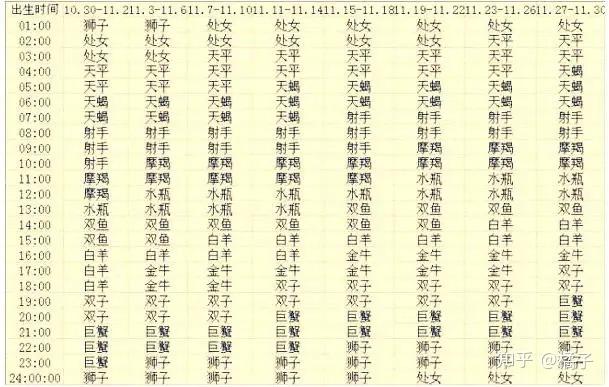 出生时间 10.30-11.2 11.3-11.6 11.7-11.10 11.11-11.14 11.15-11.18 11.19-11.22 11.23-11.26 11.27-11.30
01:00 狮子 狮子 处女 处女 处女 处女 处女 处女
02:00 处女 处女 处女 处女 处女 处女 天平 天平
03:00 处女 处女 天平 天平 天平 天平 天平 天平
04:00 天平 天平 天平 天平 天平 天平 天平 天蝎
05:00 天平 天平 天平 天蝎 天蝎 天蝎 天蝎 天蝎
06:00 天蝎 天蝎 天蝎 天蝎 天蝎 天蝎 天蝎 天蝎
07:00 天蝎 天蝎 天蝎 天蝎 射手 射手 射手 射手
08:00 射手 射手 射手 射手 射手 射手 射手 射手
09:00 射手 射手 射手 射手 射手 摩羯 摩羯 摩羯
10:00 射手 摩羯 摩羯 摩羯 摩羯 摩羯 摩羯 摩羯
11:00 摩羯 摩羯 摩羯 摩羯 摩羯 水瓶 水瓶 水瓶
12:00 摩羯 水瓶 水瓶 水瓶 水瓶 水瓶 水瓶 水瓶
13:00 水瓶 水瓶 水瓶 水瓶 双鱼 双鱼 双鱼 双鱼
14:00 双鱼 双鱼 双鱼 双鱼 双鱼 双鱼 白羊 白羊
15:00 双鱼 双鱼 白羊 白羊 白羊 白羊 白羊 白羊
16:00 白羊 白羊 白羊 白羊 金牛 金牛 金牛 金牛
17:00 白羊 金牛 金牛 金牛 金牛 金牛 金牛 双子
18:00 金牛 金牛 金牛 双子 双子 双子 双子 双子
19:00 双子 双子 双子 双子 双子 双子 双子 巨蟹
20:00 双子 双子 双子 巨蟹 巨蟹 巨蟹 巨蟹 巨蟹
21:00 巨蟹 巨蟹 巨蟹 巨蟹 巨蟹 巨蟹 巨蟹 巨蟹
22:00 巨蟹 巨蟹 巨蟹 巨蟹 狮子 狮子 狮子 狮子
23:00 巨蟹 狮子 狮子 狮子 狮子 狮子 狮子 狮子
24:00:00 狮子 狮子 狮子 狮子 狮子 处女 处女 处女
知乎 @橘子